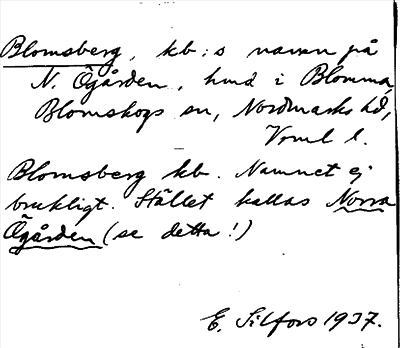 Blomsberg, kb:s namn på
N. Ögården, hmd i Blomma,
Blomskogs sn, Nordmarks hd,
Vrml l.
Blomsberg kb. Namnet ej
brukligt. Stället kallas Norra
Ögården (se detta!)
E. Silfors 1937.